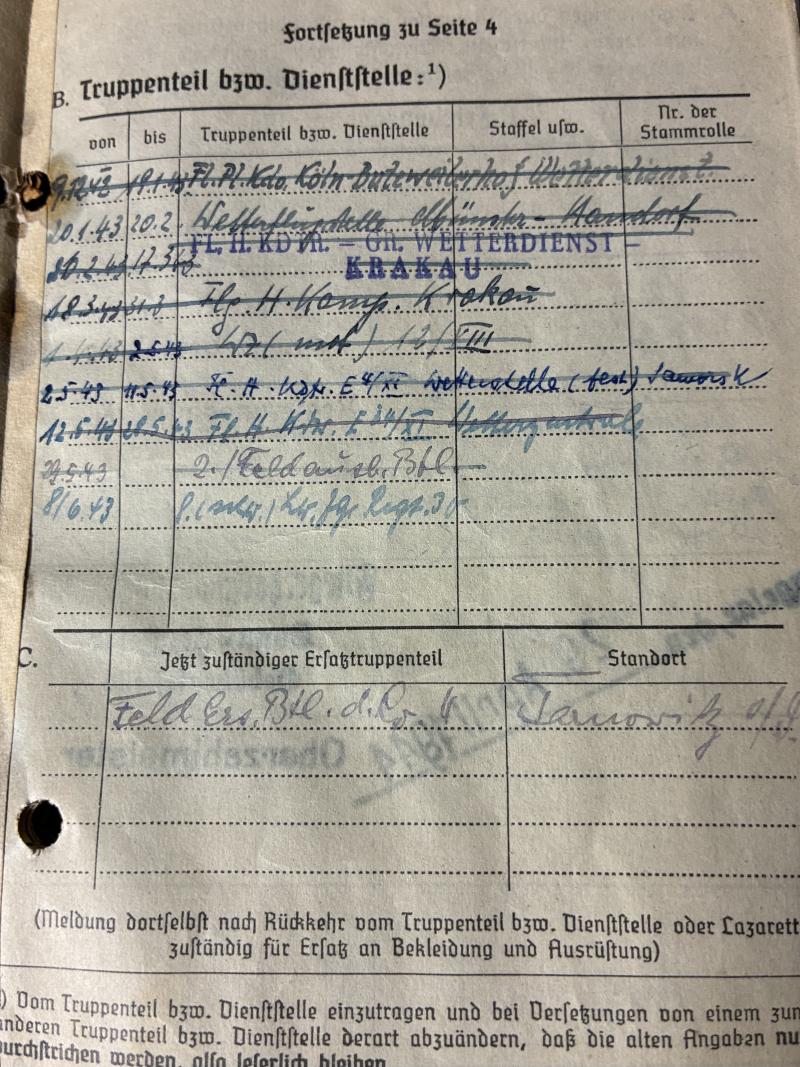 Fortsetzung zu Seite 4
B. Truppenteil bzw. Dienststelle: ¹)
von bis Truppenteil bzw. Dienststelle Staffel usw. Nr. der Stammrolle
9.12.42 19.1.43 Fl. Pl. Kdo. Köln Butzweilerhof Wetterdienst
20.1.43 20.2. Wetterflugstelle Münster-Handorf
FL. H. KDTR. – GR. WETTERDIENST –
KRAKAU
17.3.43
18.3.43 31.3 Flg. H. Komp. Krakau
2.5.43 (mot) 12/VIII
2.5.43 11.5.43 Fl. H. Kdtr. E 4/XI Wetterstelle
12.5.43 28.5.43 Fl. H. Kdtr. E 34/XI Wetterzentrale
29.5.43 2./Feldausb. Btl.
8/6.43 Lw. Jg. Regt. 30
C. Jetzt zuständiger Ersatztruppenteil Standort
Feld Ers. Btl. d. Janowitz
Oberzahlmeister
(Meldung dortselbst nach Rückkehr vom Truppenteil bzw. Dienststelle oder Lazarett
zuständig für Ersatz an Bekleidung und Ausrüstung)
¹) Vom Truppenteil bzw. Dienststelle einzutragen und bei Versetzungen von einem zum
anderen Truppenteil bzw. Dienststelle derart abzuändern, daß die alten Angaben nu
durchstrichen werden, also leserlich bleiben